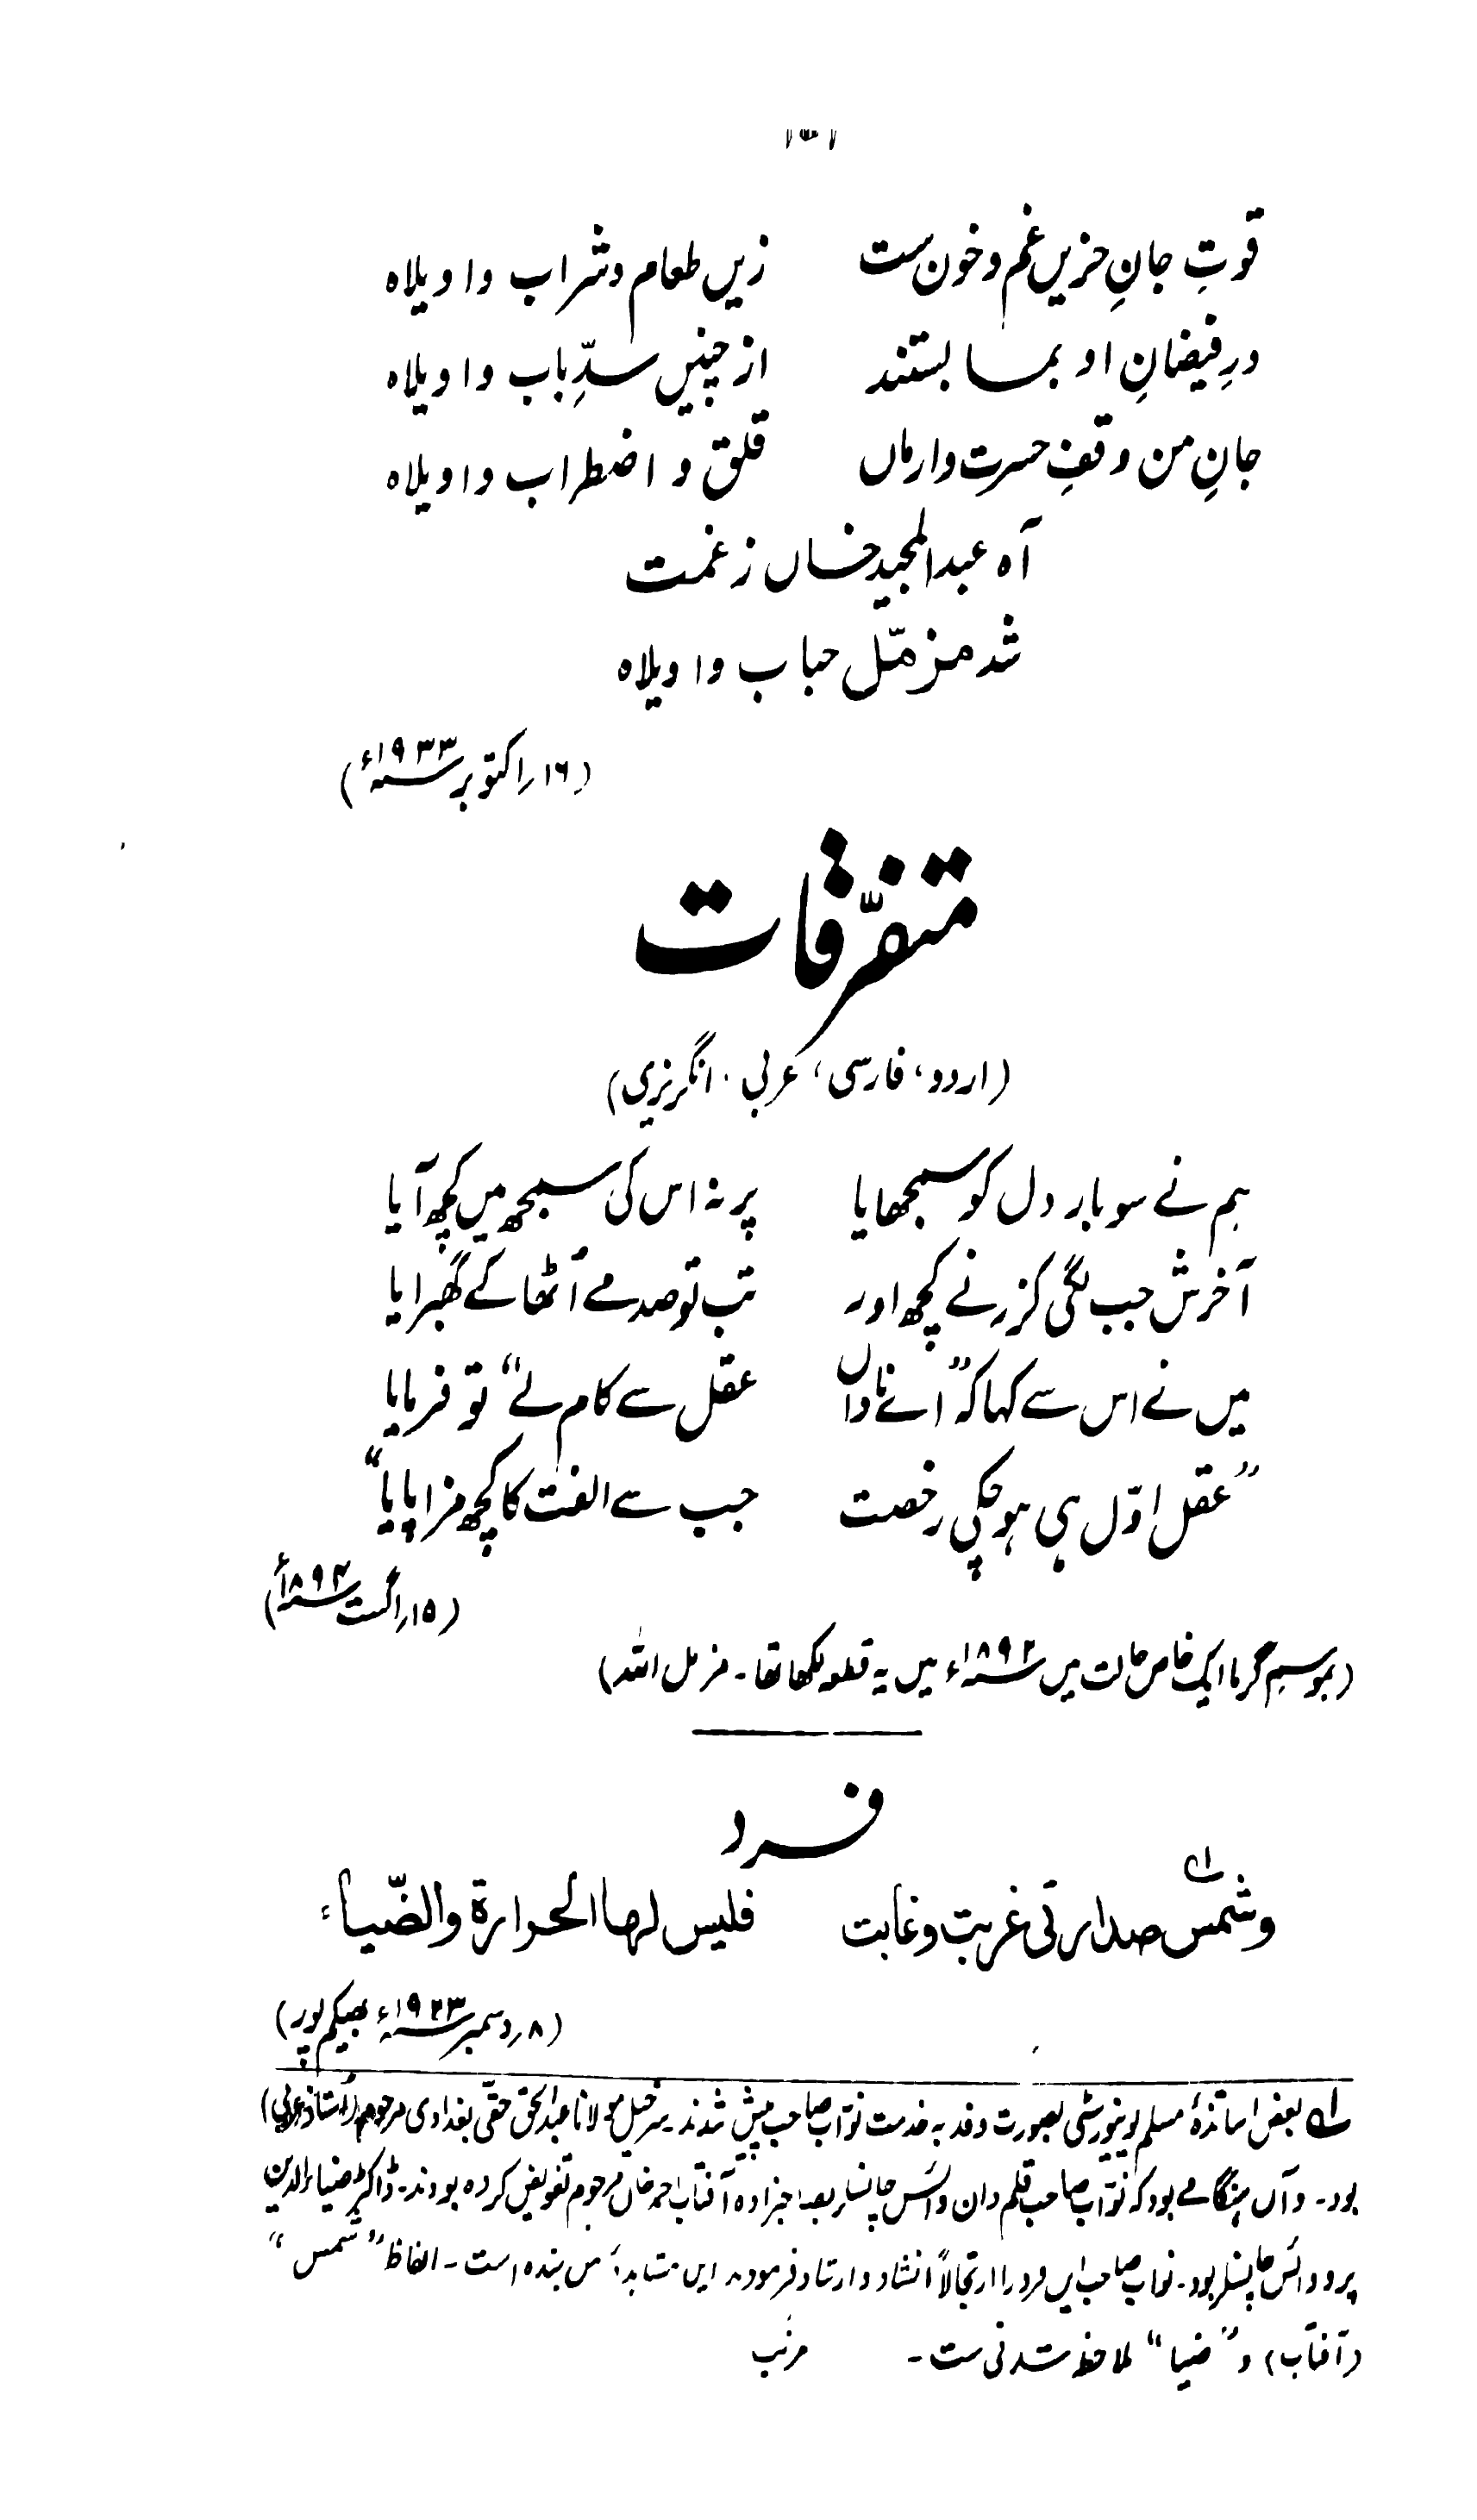 ۱۳۱
قوتِ جانِ حزیں غم و خون ست زیں طعام و شراب واویلاہ
درِ فیضانِ او بما بستند از چنیں سدِّ باب واویلاہ
جانِ من وقفِ حسرت و ارماں قلق و اضطراب واویلاہ
آہ عبدالمجید خاں ز غمت
شد مزمّل حباب واویلاہ
(۱۶؍اکتوبر ۱۹۳۳ء)
متفرّقات
(اردو، فارسی، عربی، انگریزی)
ہم نے سو بار دل کو سمجھایا پر نہ اس کی سمجھ میں کچھ آیا
آخرش جب لگی گزرنے کچھ اور تب تو صدمے اُٹھا کے گھبرایا
میں نے اس سے کہا کہ "اے ناداں عقل سے کام لے" تو فرمایا
"عقل اوّل ہی ہو چکی رخصت جب سے الفت کا کچھ مزا پایا"
(۱۵؍اگست ۱۸۹۲ء)
(بموسم گرما ایک خاص حالت میں ۱۸۹۲ء میں یہ قطعہ لکھا تھا۔ مزمل اللہ)
فرد
وشمس صدارتی غربت وغابت فلیس لھا الحرارۃ والضّیاء
(۸؍دسمبر ۱۹۳۳ء بھیکم پور)
لہ بعض اساتذۂ مسلم یونیورسٹی بصورت وفد بہ خدمت نوّاب صاحب پیش شدند۔ سرخیل مولانا عبدالحق حقی بغدادی مرحوم (استاذ عربی)
بود۔ و آں ہنگامے بود کہ نوّاب صاحب قلم دان وائس چانسلر بصاحبزادہ آفتاب احمد خاں مرحوم تفویض کردہ بودند۔ ڈاکٹر ضیاء الدین
پرو وائس چانسلر بود۔ نواب صاحب ایں فرد را ارتجالاً انشاد و ارشاد فرمودند ایں مشاہدۂ من بندہ است۔ الفاظ "شمس"
(آفتاب) و "ضیا" ملاحظہ شدنی ست۔ مرتب